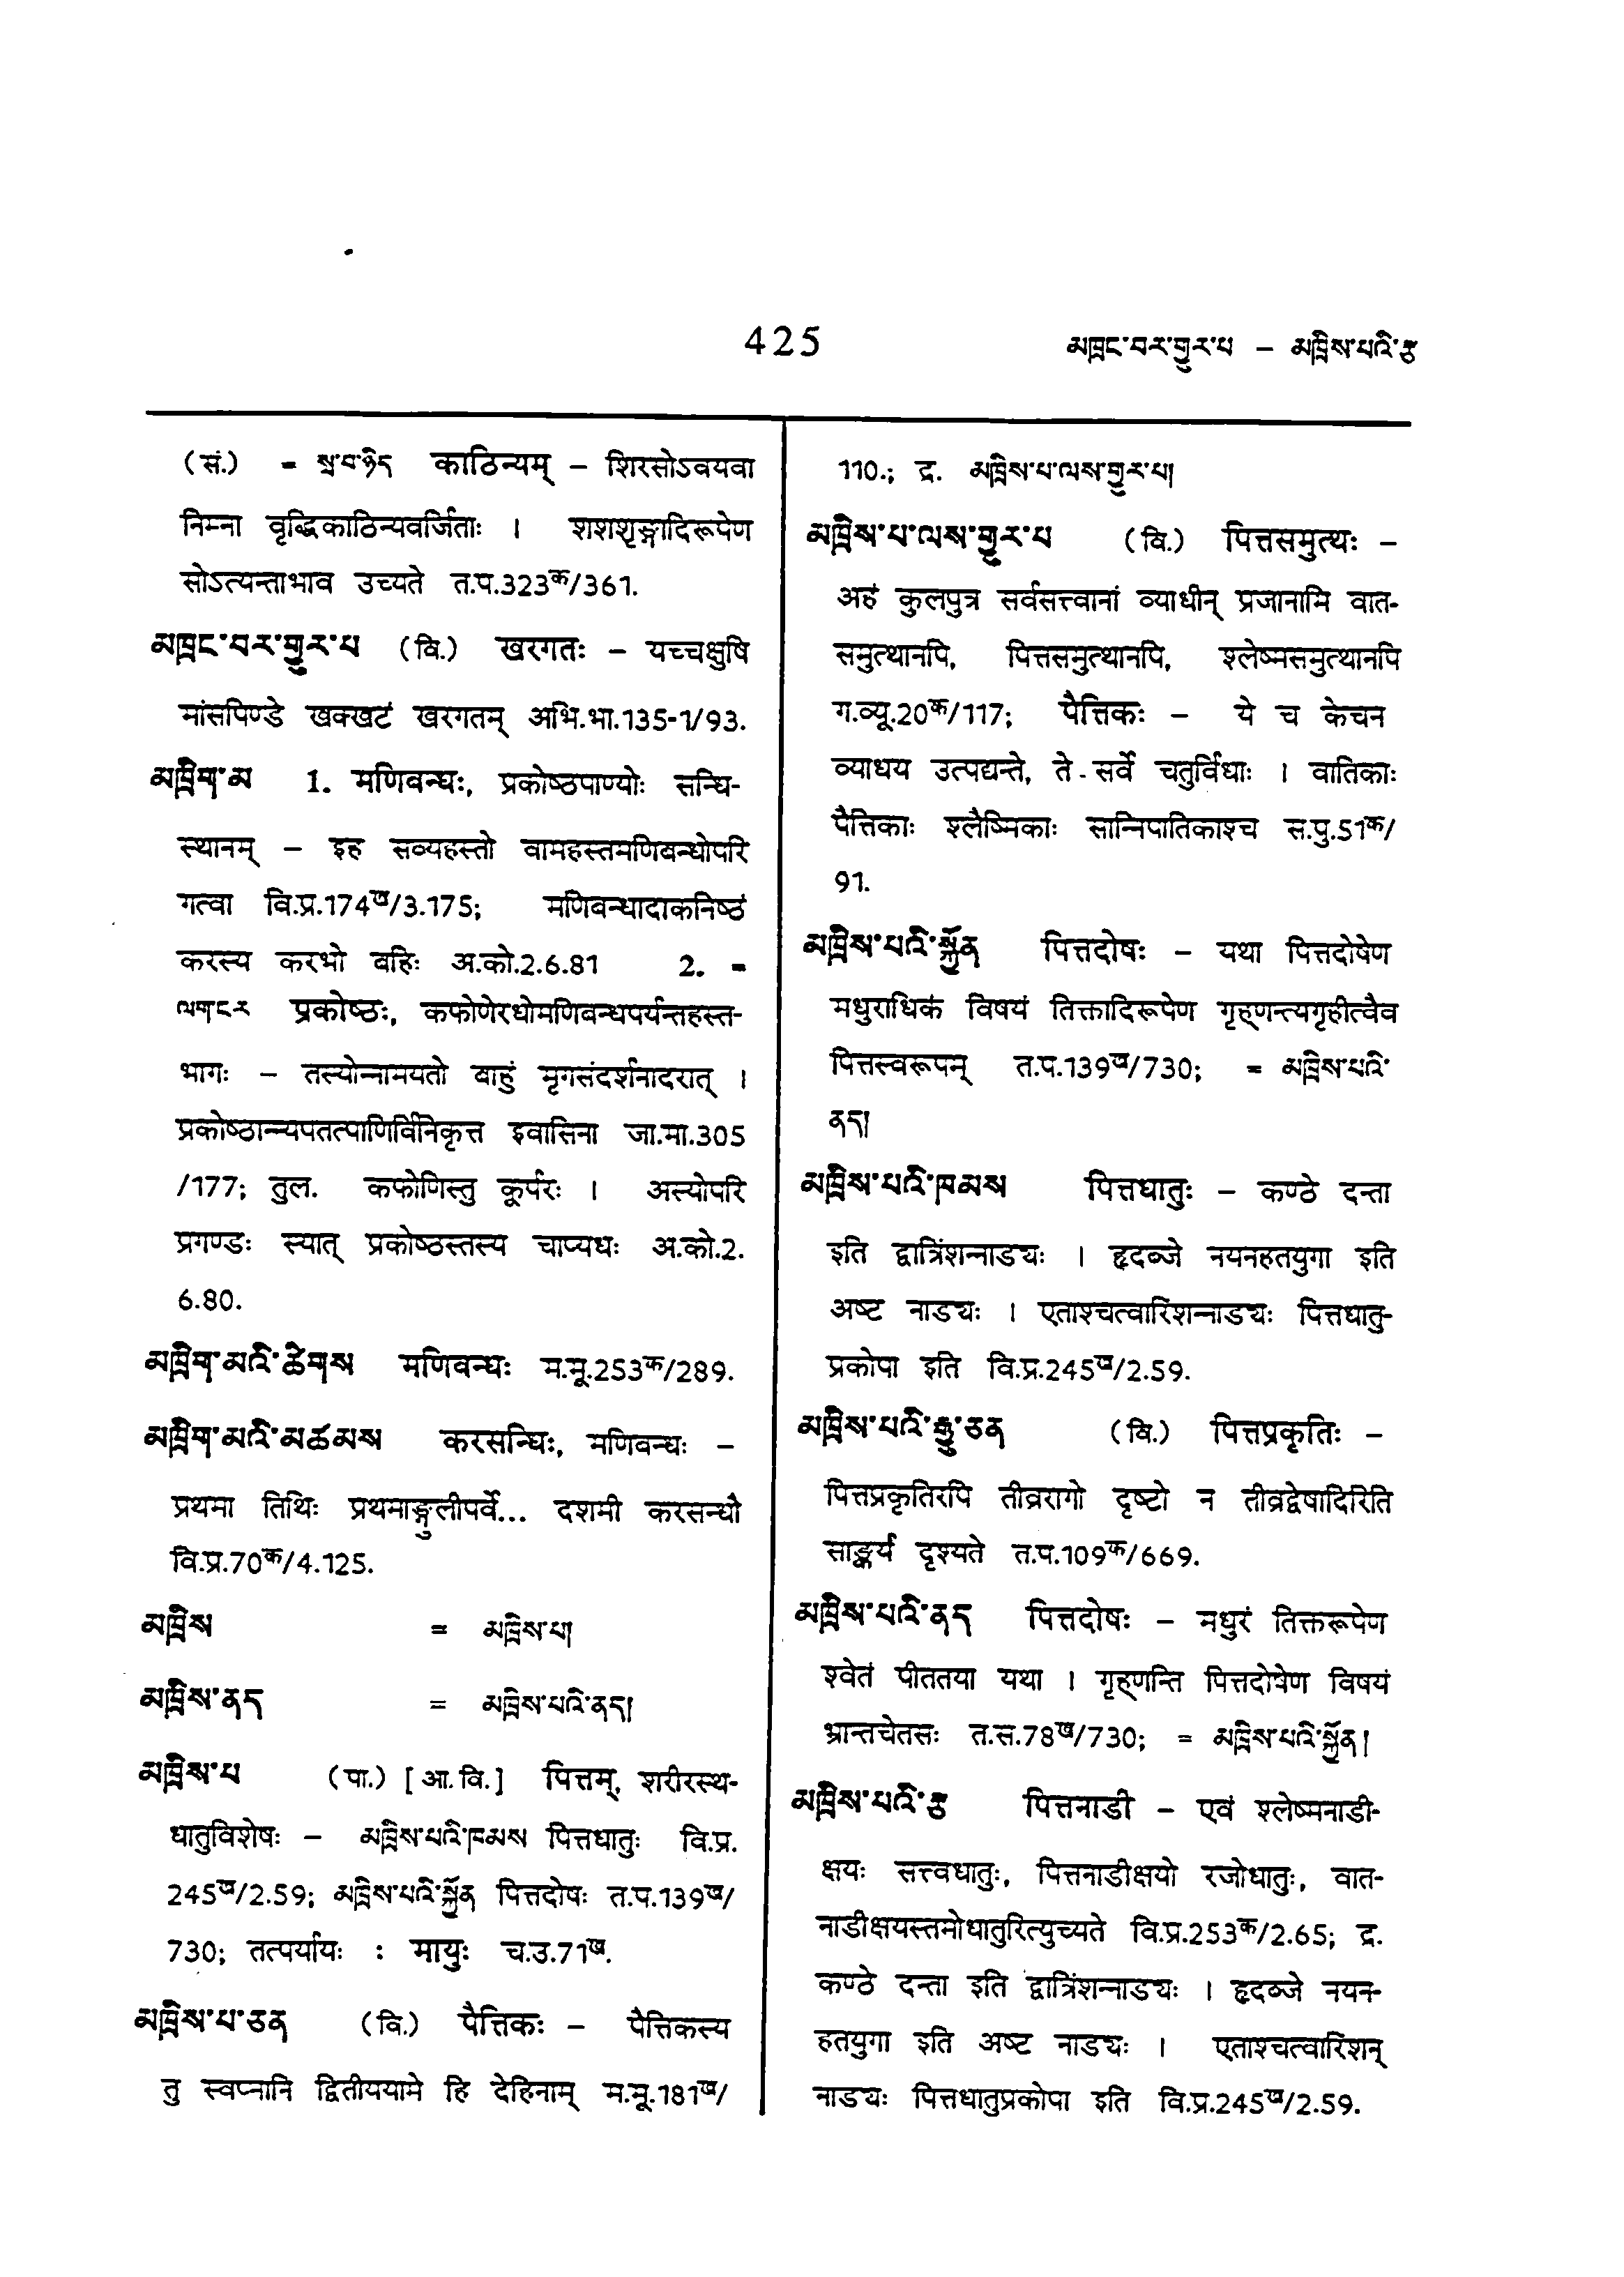 425
མཁྲང་བར་གྱུར་པ – མཁྲིས་པའི་རྩ
(सं.) = སྲ་བ་ཉིད काठिन्यम् – शिरसोऽवयवा
निम्ना वृद्धिकाठिन्यवर्जिताः । शशशृङ्गादिरूपेण
सोऽत्यन्ताभाव उच्यते त.प.323क/361.
མཁྲང་བར་གྱུར་པ (वि.) खरगतः – यच्चक्षुषि
मांसपिण्डे खक्खटं खरगतम् अभि.भा.135-1/93.
མཁྲིག་མ 1. मणिबन्धः, प्रकोष्ठपाण्योः सन्धि-
स्थानम् – इह सव्यहस्तो वामहस्तमणिबन्धोपरि
गत्वा वि.प्र.174ख/3.175; मणिबन्धादाकनिष्ठं
करस्य करभो बहिः अ.को.2.6.81 2. =
ལག་ངར प्रकोष्ठः, कफोणेरधोमणिबन्धपर्यन्तहस्त-
भागः – तस्योन्नामयतो बाहुं मृगसंदर्शनादरात् ।
प्रकोष्ठान्न्यपतत्पाणिर्विनिकृत्त इवासिना जा.मा.305
/177; तुल. कफोणिस्तु कूर्परः । अस्योपरि
प्रगण्डः स्यात् प्रकोष्ठस्तस्य चाप्यधः अ.को.2.
6.80.
མཁྲིག་མའི་ཚིགས मणिबन्धः म.मू.253क/289.
མཁྲིག་མའི་མཚམས करसन्धिः, मणिबन्धः –
प्रथमा तिथिः प्रथमाङ्गुलीपर्वे... दशमी करसन्धौ
वि.प्र.70क/4.125.
མཁྲིས = མཁྲིས་པ།
མཁྲིས་ནད = མཁྲིས་པའི་ནད།
མཁྲིས་པ (पा.) [आ.वि.] पित्तम्, शरीरस्थ-
धातुविशेषः – མཁྲིས་པའི་ཁམས पित्तधातुः वि.प्र.
245ख/2.59; མཁྲིས་པའི་སྐྱོན पित्तदोषः त.प.139ख/
730; तत्पर्यायः : मायुः च.उ.71ख.
མཁྲིས་པ་ཅན (वि.) पैत्तिकः – पैत्तिकस्य
तु स्वप्नानि द्वितीययामे हि देहिनाम् म.मू.181ख/
110.; द्र. མཁྲིས་པ་ལས་གྱུར་པ།
མཁྲིས་པ་ལས་གྱུར་པ (वि.) पित्तसमुत्थः –
अहं कुलपुत्र सर्वसत्त्वानां व्याधीन् प्रजानामि वात-
समुत्थानपि, पित्तसमुत्थानपि, श्लेष्मसमुत्थानपि
ग.व्यू.20क/117; पैत्तिकः – ये च केचन
व्याधय उत्पद्यन्ते, ते सर्वे चतुर्विधाः । वातिकाः
पैत्तिकाः श्लैष्मिकाः सान्निपातिकाश्च स.पु.51क/
91.
མཁྲིས་པའི་སྐྱོན पित्तदोषः – यथा पित्तदोषेण
मधुराधिकं विषयं तिक्तादिरूपेण गृह्णन्त्यगृहीत्वैव
पित्तस्वरूपम् त.प.139ख/730; = མཁྲིས་པའི་
ནད།
མཁྲིས་པའི་ཁམས पित्तधातुः – कण्ठे दन्ता
इति द्वात्रिंशन्नाड्यः । हृदब्जे नयनहतयुगा इति
अष्ट नाड्यः । एताश्चत्वारिंशन्नाड्यः पित्तधातु-
प्रकोपा इति वि.प्र.245ख/2.59.
མཁྲིས་པའི་རྒྱུ་ཅན (वि.) पित्तप्रकृतिः –
पित्तप्रकृतिरपि तीव्ररागो दृष्टो न तीव्रद्वेषादिरिति
साङ्कर्यं दृश्यते त.प.109क/669.
མཁྲིས་པའི་ནད पित्तदोषः – मधुरं तिक्तरूपेण
श्वेतं पीततया यथा । गृह्णन्ति पित्तदोषेण विषयं
भ्रान्तचेतसः त.स.78ख/730; = མཁྲིས་པའི་སྐྱོན།
མཁྲིས་པའི་རྩ पित्तनाडी – एवं श्लेष्मनाडी-
क्षयः सत्त्वधातुः, पित्तनाडीक्षयो रजोधातुः, वात-
नाडीक्षयस्तमोधातुरित्युच्यते वि.प्र.253क/2.65; द्र.
कण्ठे दन्ता इति द्वात्रिंशन्नाड्यः । हृदब्जे नयन-
हतयुगा इति अष्ट नाड्यः । एताश्चत्वारिंशन्
नाड्यः पित्तधातुप्रकोपा इति वि.प्र.245ख/2.59.